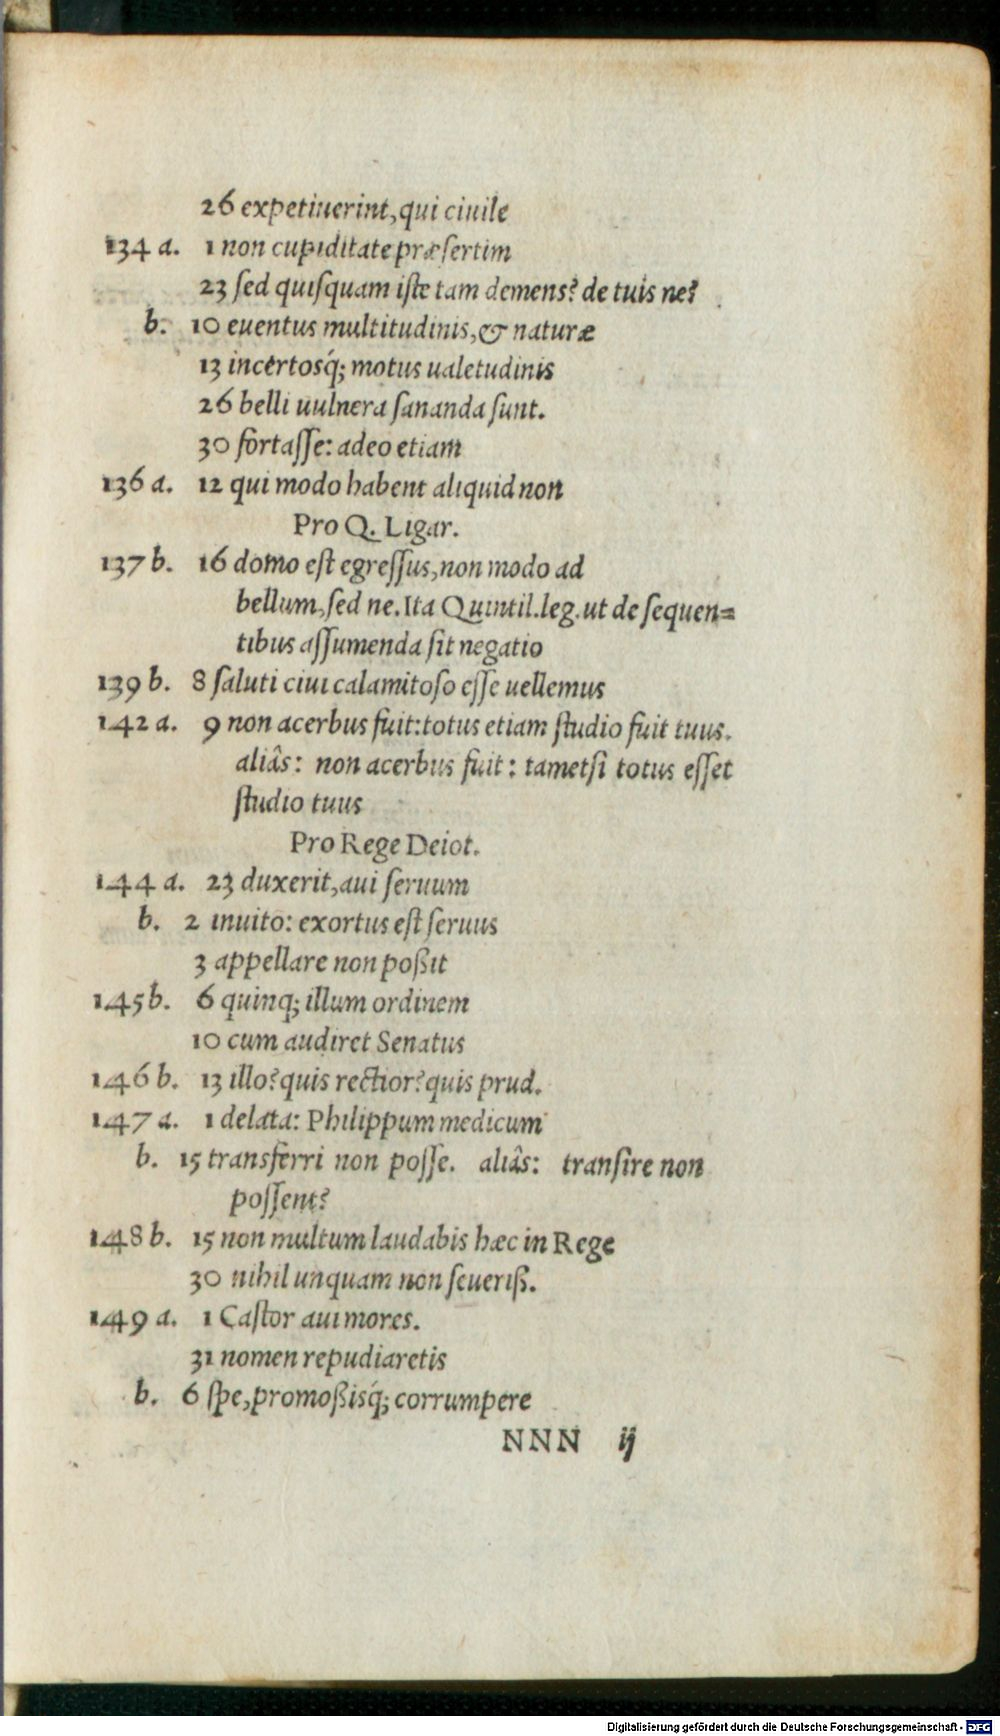 26 expetiuerint, qui ciuile
134 a. 1 non cupiditate præsertim
23 sed quisquam iste tam demens? de tuis ne?
b. 10 euentus multitudinis, & naturæ
13 incertosq́; motus ualetudinis
26 belli uulnera sananda sunt.
30 fortasse: adeo etiam
136 a. 12 qui modo habent aliquid non
Pro Q. Ligar.
137 b. 16 domo est egressus, non modo ad
bellum, sed ne. Ita Quintil. leg. ut de sequen=
tibus assumenda sit negatio
139 b. 8 saluti ciui calamitoso esse uellemus
142 a. 9 non acerbus fuit: totus etiam studio fuit tuus.
aliâs: non acerbus fuit: tametsi totus esset
studio tuus
Pro Rege Deiot.
144 a. 23 duxerit, aui seruum
b. 2 inuito: exortus est seruus
3 appellare non poßit
145 b. 6 quinq; illum ordinem
10 cum audiret Senatus
146 b. 13 illo? quis rectior? quis prud.
147 a. 1 delata: Philippum medicum
b. 15 transferri non posse. aliâs: transire non
possent?
148 b. 15 non multum laudabis hæc in Rege
30 nihil unquam non seueriß.
149 a. 1 Castor aui mores.
31 nomen repudiaretis
b. 6 spe, promoßisq́; corrumpere
NNN ij
Digitalisierung gefördert durch die Deutsche Forschungsgemeinschaft - DFG